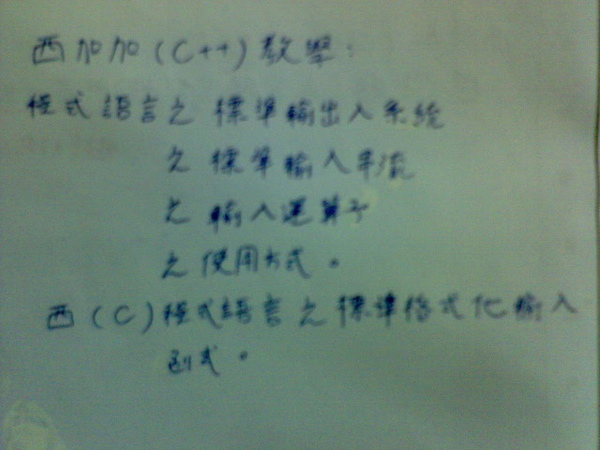 西加加(C++)教學:
程式語言之標準輸出入系統
之標準輸入串流
之輸入運算子
之使用方式。
西(C)程式語言之標準格式化輸入
函式。